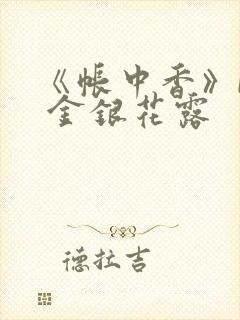 《帐中香》
金银花露
德拉吉